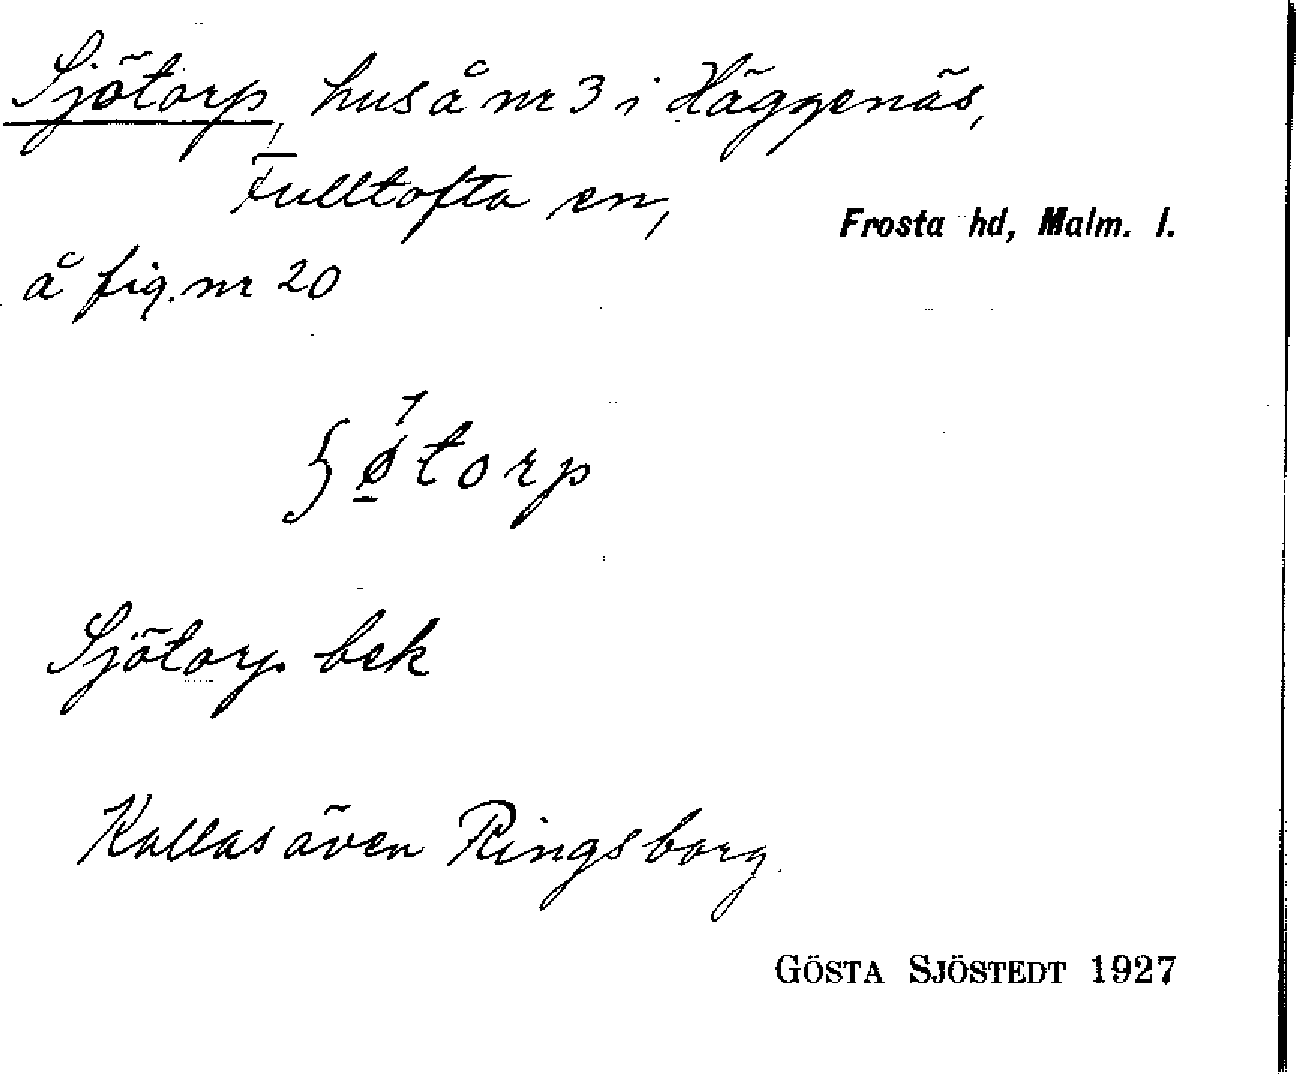 Sjötorp, hus å nr 3 i Häggenäs,
Fulltofta sn,
Frosta hd, Malm. l.
å fig. nr 20
ʃǿ̠torp
Sjötorp bek
Kallas även Ringsborg.
GÖSTA SJÖSTEDT 1927